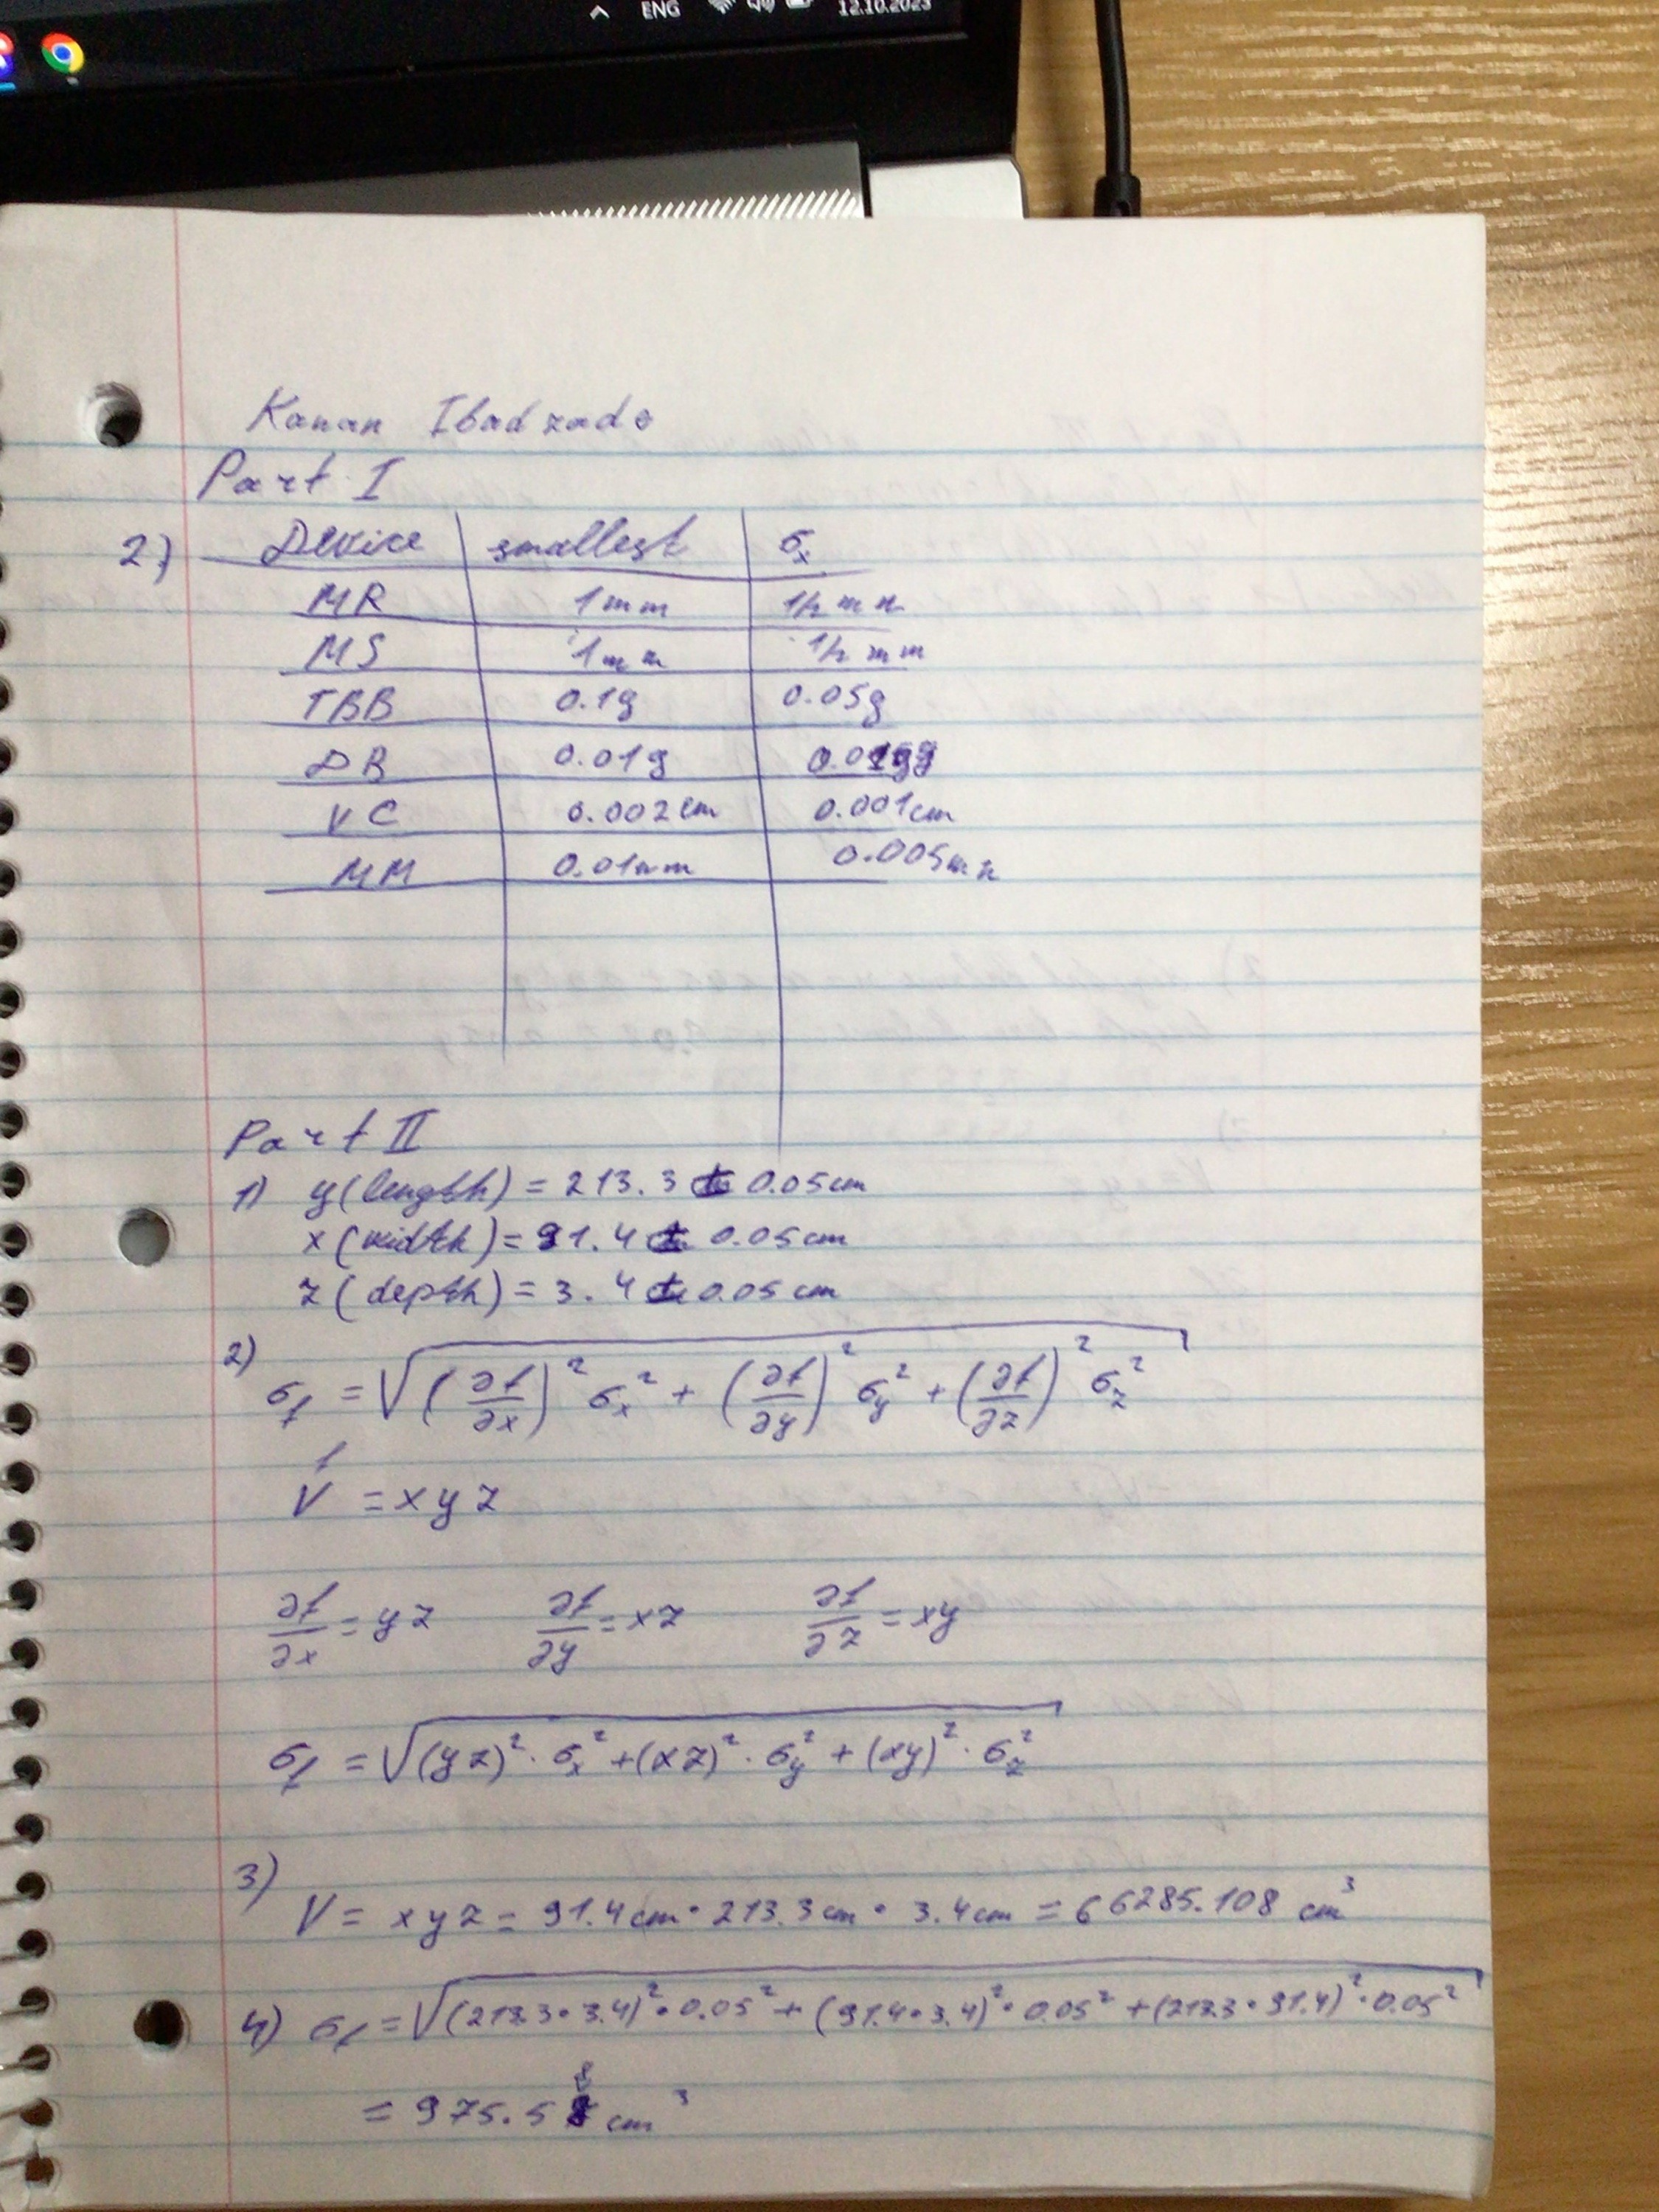 ENG
12.10.2023
Kanan Ibadzade
Part I
2) Device smallest σx
MR 1mm 1/2 mm
MS 1mm 1/2 mm
TBB 0.1g 0.05g
DB 0.01g
VC 0.002cm 0.001cm
MM 0.01mm 0.005mm
Part II
1) y(length) = 213.3 ± 0.05cm
x(width) = 91.4 ± 0.05cm
z(depth) = 3.4 ± 0.05cm
2) σf = √((∂f/∂x)² σx² + (∂f/∂y)² σy² + (∂f/∂z)² σz²)
f
V = xyz
∂f/∂x = yz ∂f/∂y = xz ∂f/∂z = xy
σf = √((yz)² · σx² + (xz)² · σy² + (xy)² · σz²)
3)
V = xyz = 91.4cm · 213.3cm · 3.4cm = 66285.108 cm³
4) σf = √((213.3 · 3.4)² · 0.05² + (91.4 · 3.4)² · 0.05² + (213.3 · 91.4)² · 0.05²
= 975.58 cm³